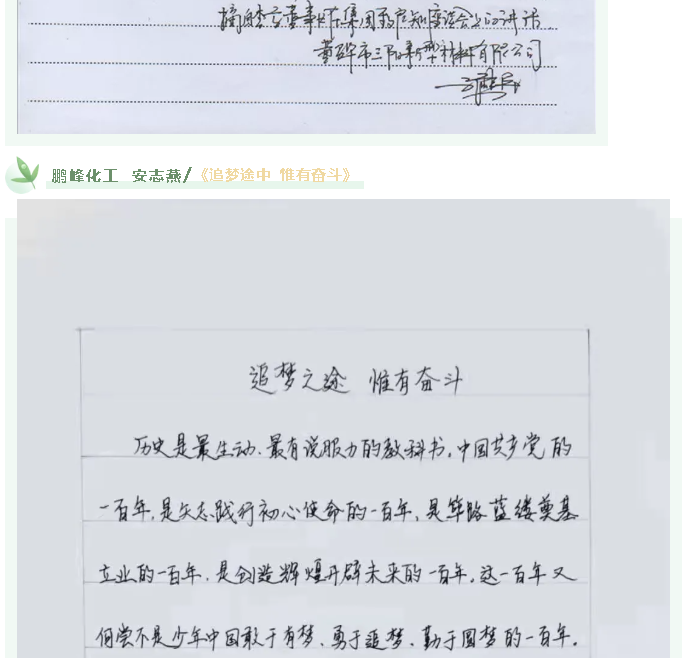 董骅市三阳新型材料有限公司
鹏峰化工 安志燕/《追梦途中 惟有奋斗》
追梦之途 惟有奋斗
历史是最生动、最有说服力的教科书。中国共产党的
一百年,是矢志践行初心使命的一百年,是筚路蓝缕奠基
立业的一百年,是创造辉煌开辟未来的一百年。这一百年又
何尝不是少年中国敢于有梦、勇于追梦、勤于圆梦的一百年。